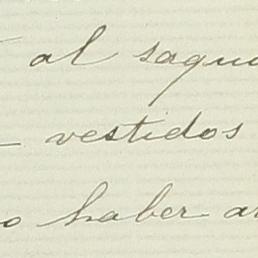 al sagua
vestidos
o haber ar